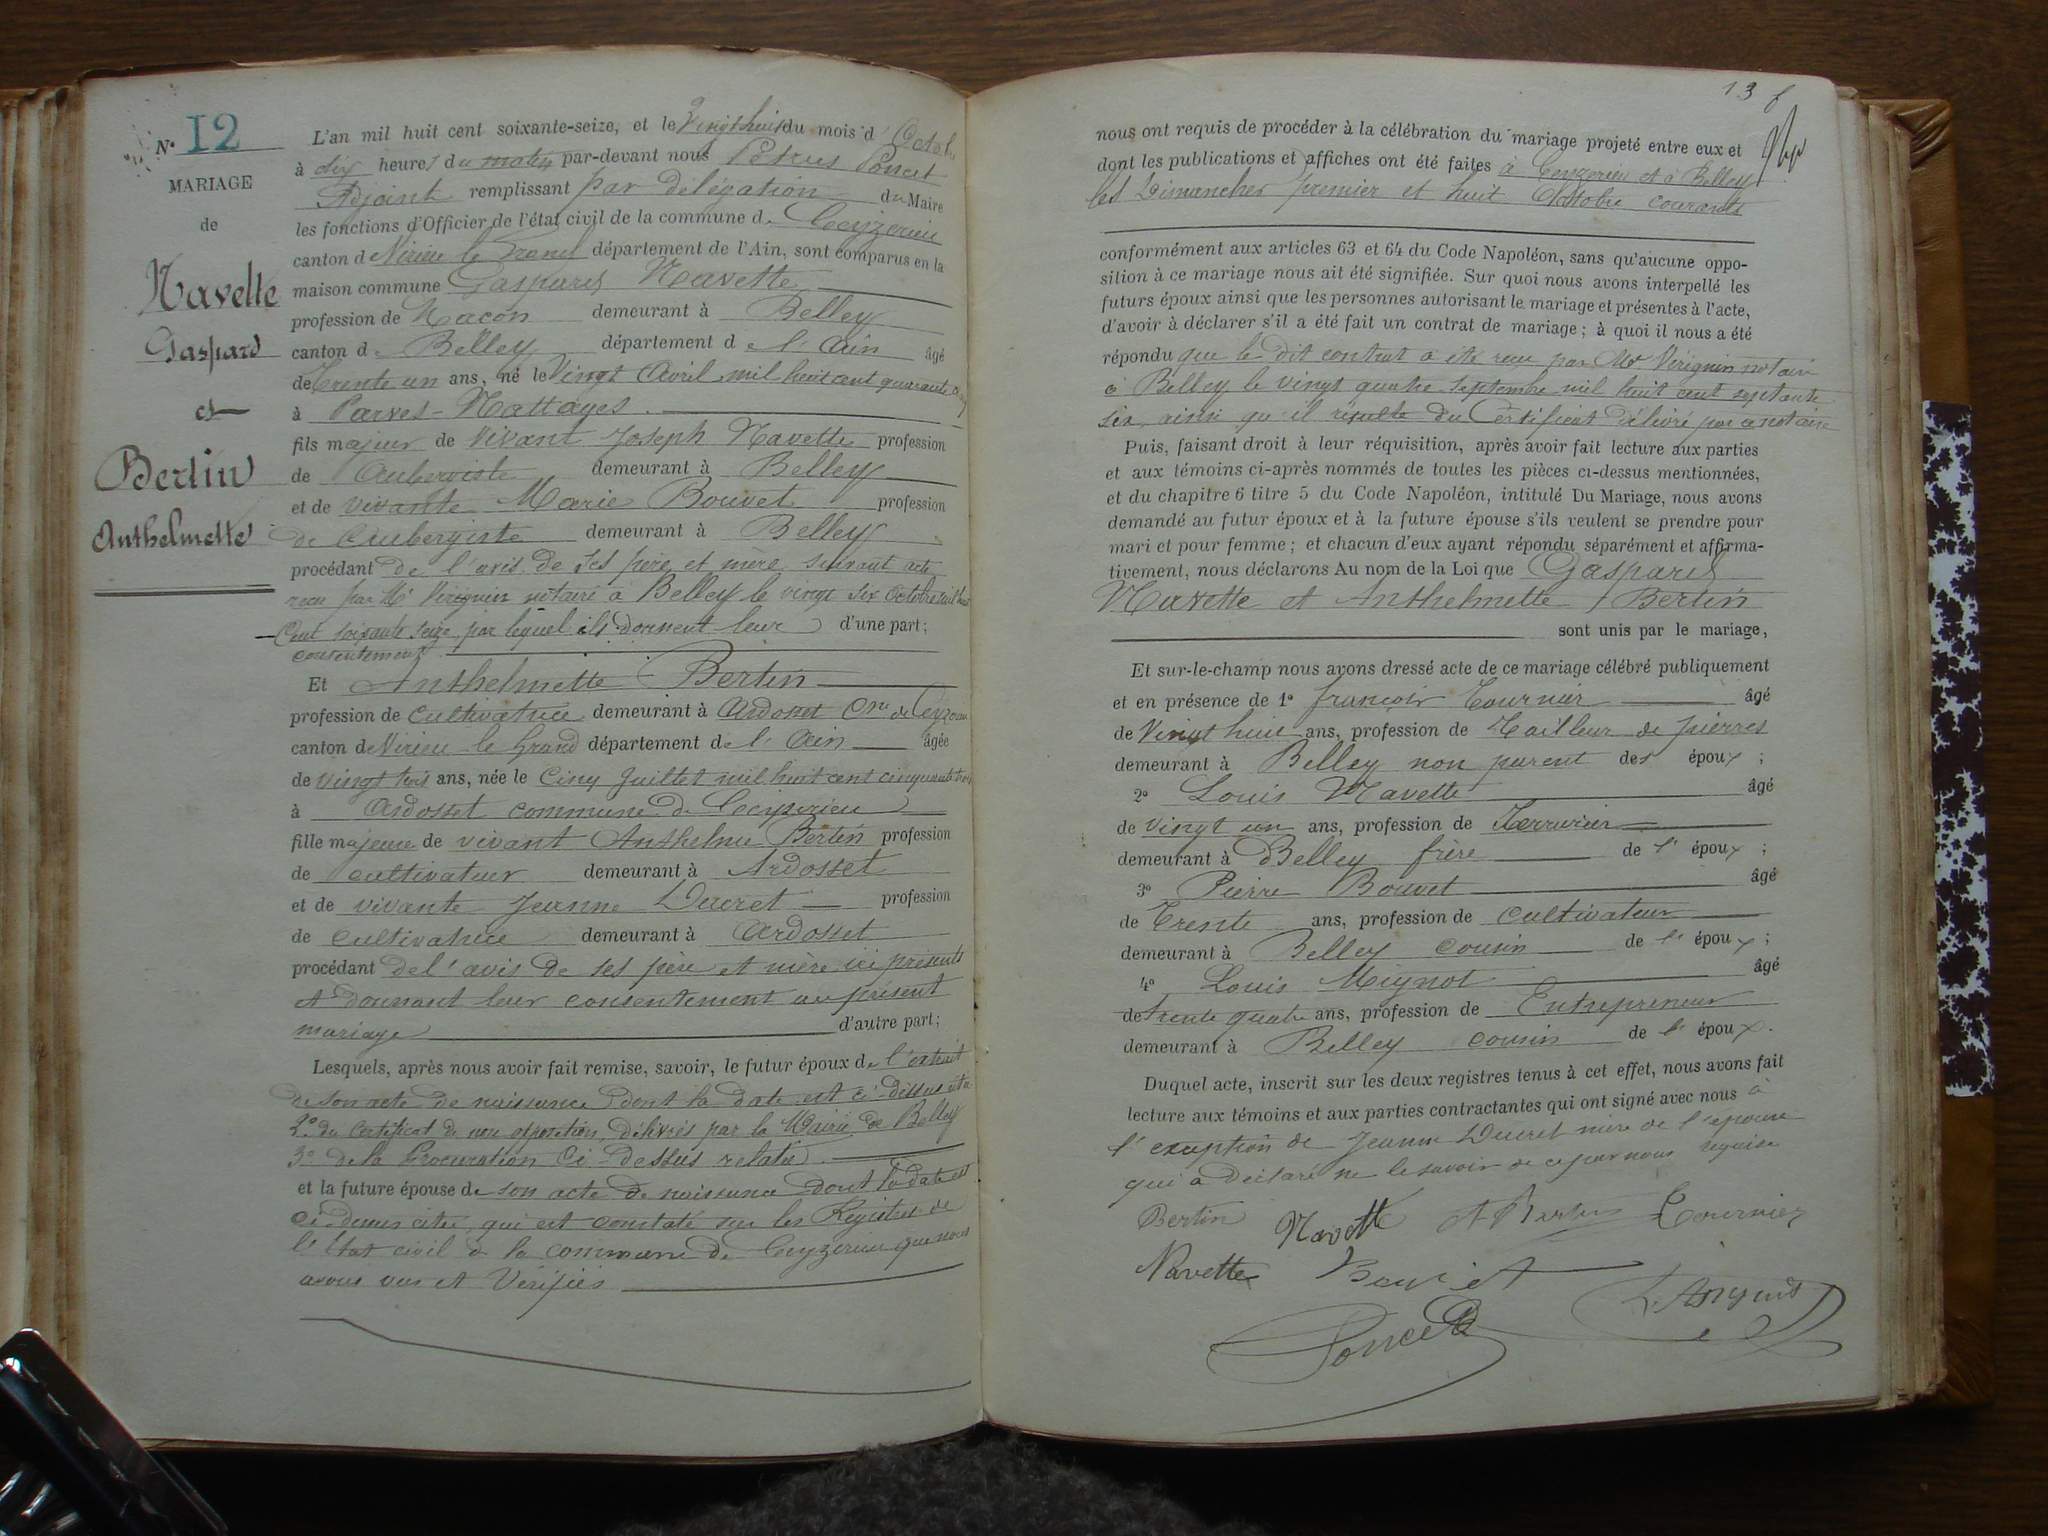 N° 12
MARIAGE
de
Navette
Gaspard
et
Bertin
Anthelmette
L'an mil huit cent soixante-seize, et le Vingt huit du mois d'Octobre
à dix heures du matin par-devant nous Pétrus Poncet
Adjoint remplissant par délégation du Maire
les fonctions d'Officier de l'état civil de la commune de Ceyzerieu
canton de Virieu le Grand département de l'Ain, sont comparus en la
maison commune Gaspard Navette
profession de Maçon demeurant à Belley
canton de Belley département de l'Ain âgé
de Trente un ans, né le Vingt Avril mil huit cent quarante cinq
à Parves-Nattages
fils majeur de vivant Joseph Navette profession
de Auberviste demeurant à Belley
et de vivante Marie Bouvet profession
de Aubergiste demeurant à Belley
procédant de l'avis de ses père et mère suivant acte
recu par Me Virignin notaire à Belley le vingt six Octobre mil huit
Cent soixante seize par lequel ils donnent leur d'une part;
consentement
Et Anthelmette Bertin
profession de Cultivatrice demeurant à Ardosset Cne de Ceyzerieu
canton de Virieu le Grand département de l'Ain âgée
de Vingt trois ans, née le Cinq Juillet mil huit cent cinquante trois
à Ardosset commune de Ceyzerieu
fille majeure de vivant Anthelme Bertin profession
de cultivateur demeurant à Ardosset
et de vivante Jeanne Ducret profession
de Cultivatrice demeurant à Ardosset
procédant de l'avis de ses père et mère ici présents
et donnant leur consentement au présent
mariage d'autre part;
Lesquels, après nous avoir fait remise, savoir, le futur époux de l'extrait
de son acte de naissance dont la date est ci-dessus
2° du Certificat de non opposition, délivrés par la Mairie de Belley
3° de la Procuration Ci-Dessus relatée
et la future épouse de son acte de naissance dont la date est
Ci-dessus citée, qui est constaté sur les Registres de
l'état civil de la commune de Ceyzerieu que nous
avons vus et Vérifiés
13
nous ont requis de procéder à la célébration du mariage projeté entre eux et
dont les publications et affiches ont été faites à Ceyzerieu et à Belley
les Dimanches premier et huit Octobre courants
conformément aux articles 63 et 64 du Code Napoléon, sans qu'aucune oppo-
sition à ce mariage nous ait été signifiée. Sur quoi nous avons interpellé les
futurs époux ainsi que les personnes autorisant le mariage et présentes à l'acte,
d'avoir à déclarer s'il a été fait un contrat de mariage; à quoi il nous a été
répondu que le dit contrat a été reçu par Me Virignin notaire
à Belley le vingt quatre Septembre mil huit cent septante
six, ainsi qu'il résulte du Certificat délivré par ce notaire
Puis, faisant droit à leur réquisition, après avoir fait lecture aux parties
et aux témoins ci-après nommés de toutes les pièces ci-dessus mentionnées,
et du chapitre 6 titre 5 du Code Napoléon, intitulé Du Mariage, nous avons
demandé au futur époux et à la future épouse s'ils veulent se prendre pour
mari et pour femme; et chacun d'eux ayant répondu séparément et affirma-
tivement, nous déclarons Au nom de la Loi que Gaspard
Navette et Anthelmette Bertin
sont unis par le mariage,
Et sur-le-champ nous avons dressé acte de ce mariage célébré publiquement
et en présence de 1° françois Tournier âgé
de Vingt huit ans, profession de Tailleur de pierres
demeurant à Belley non parent des époux;
2° Louis Navette âgé
de vingt un ans, profession de Serrurier
demeurant à Belley frère de l'époux;
3° Pierre Bouvet âgé
de Trente ans, profession de Cultivateur
demeurant à Belley cousin de l'époux;
4° Louis Mignot âgé
de trente quatre ans, profession de Entrepreneur
demeurant à Belley cousin de l'époux.
Duquel acte, inscrit sur les deux registres tenus à cet effet, nous avons fait
lecture aux témoins et aux parties contractantes qui ont signé avec nous à
l'exception de Jeanne Ducret mère de l'épouse
qui a déclaré ne le savoir de ce par nous requise
Bertin Navette A Bertin Tournier
Navette Bouvet
Poncet